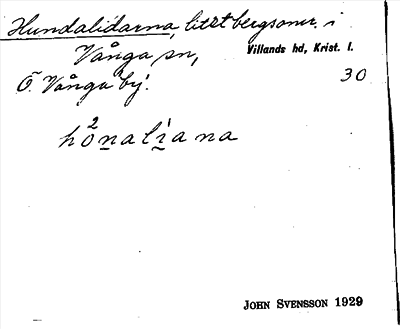 Hundalidarna, litet bergsomr. i
Vånga sn, Villands hd, Krist. l.
Ö. Vånga by. 30
hònalìana
JOHN SVENSSON 1929